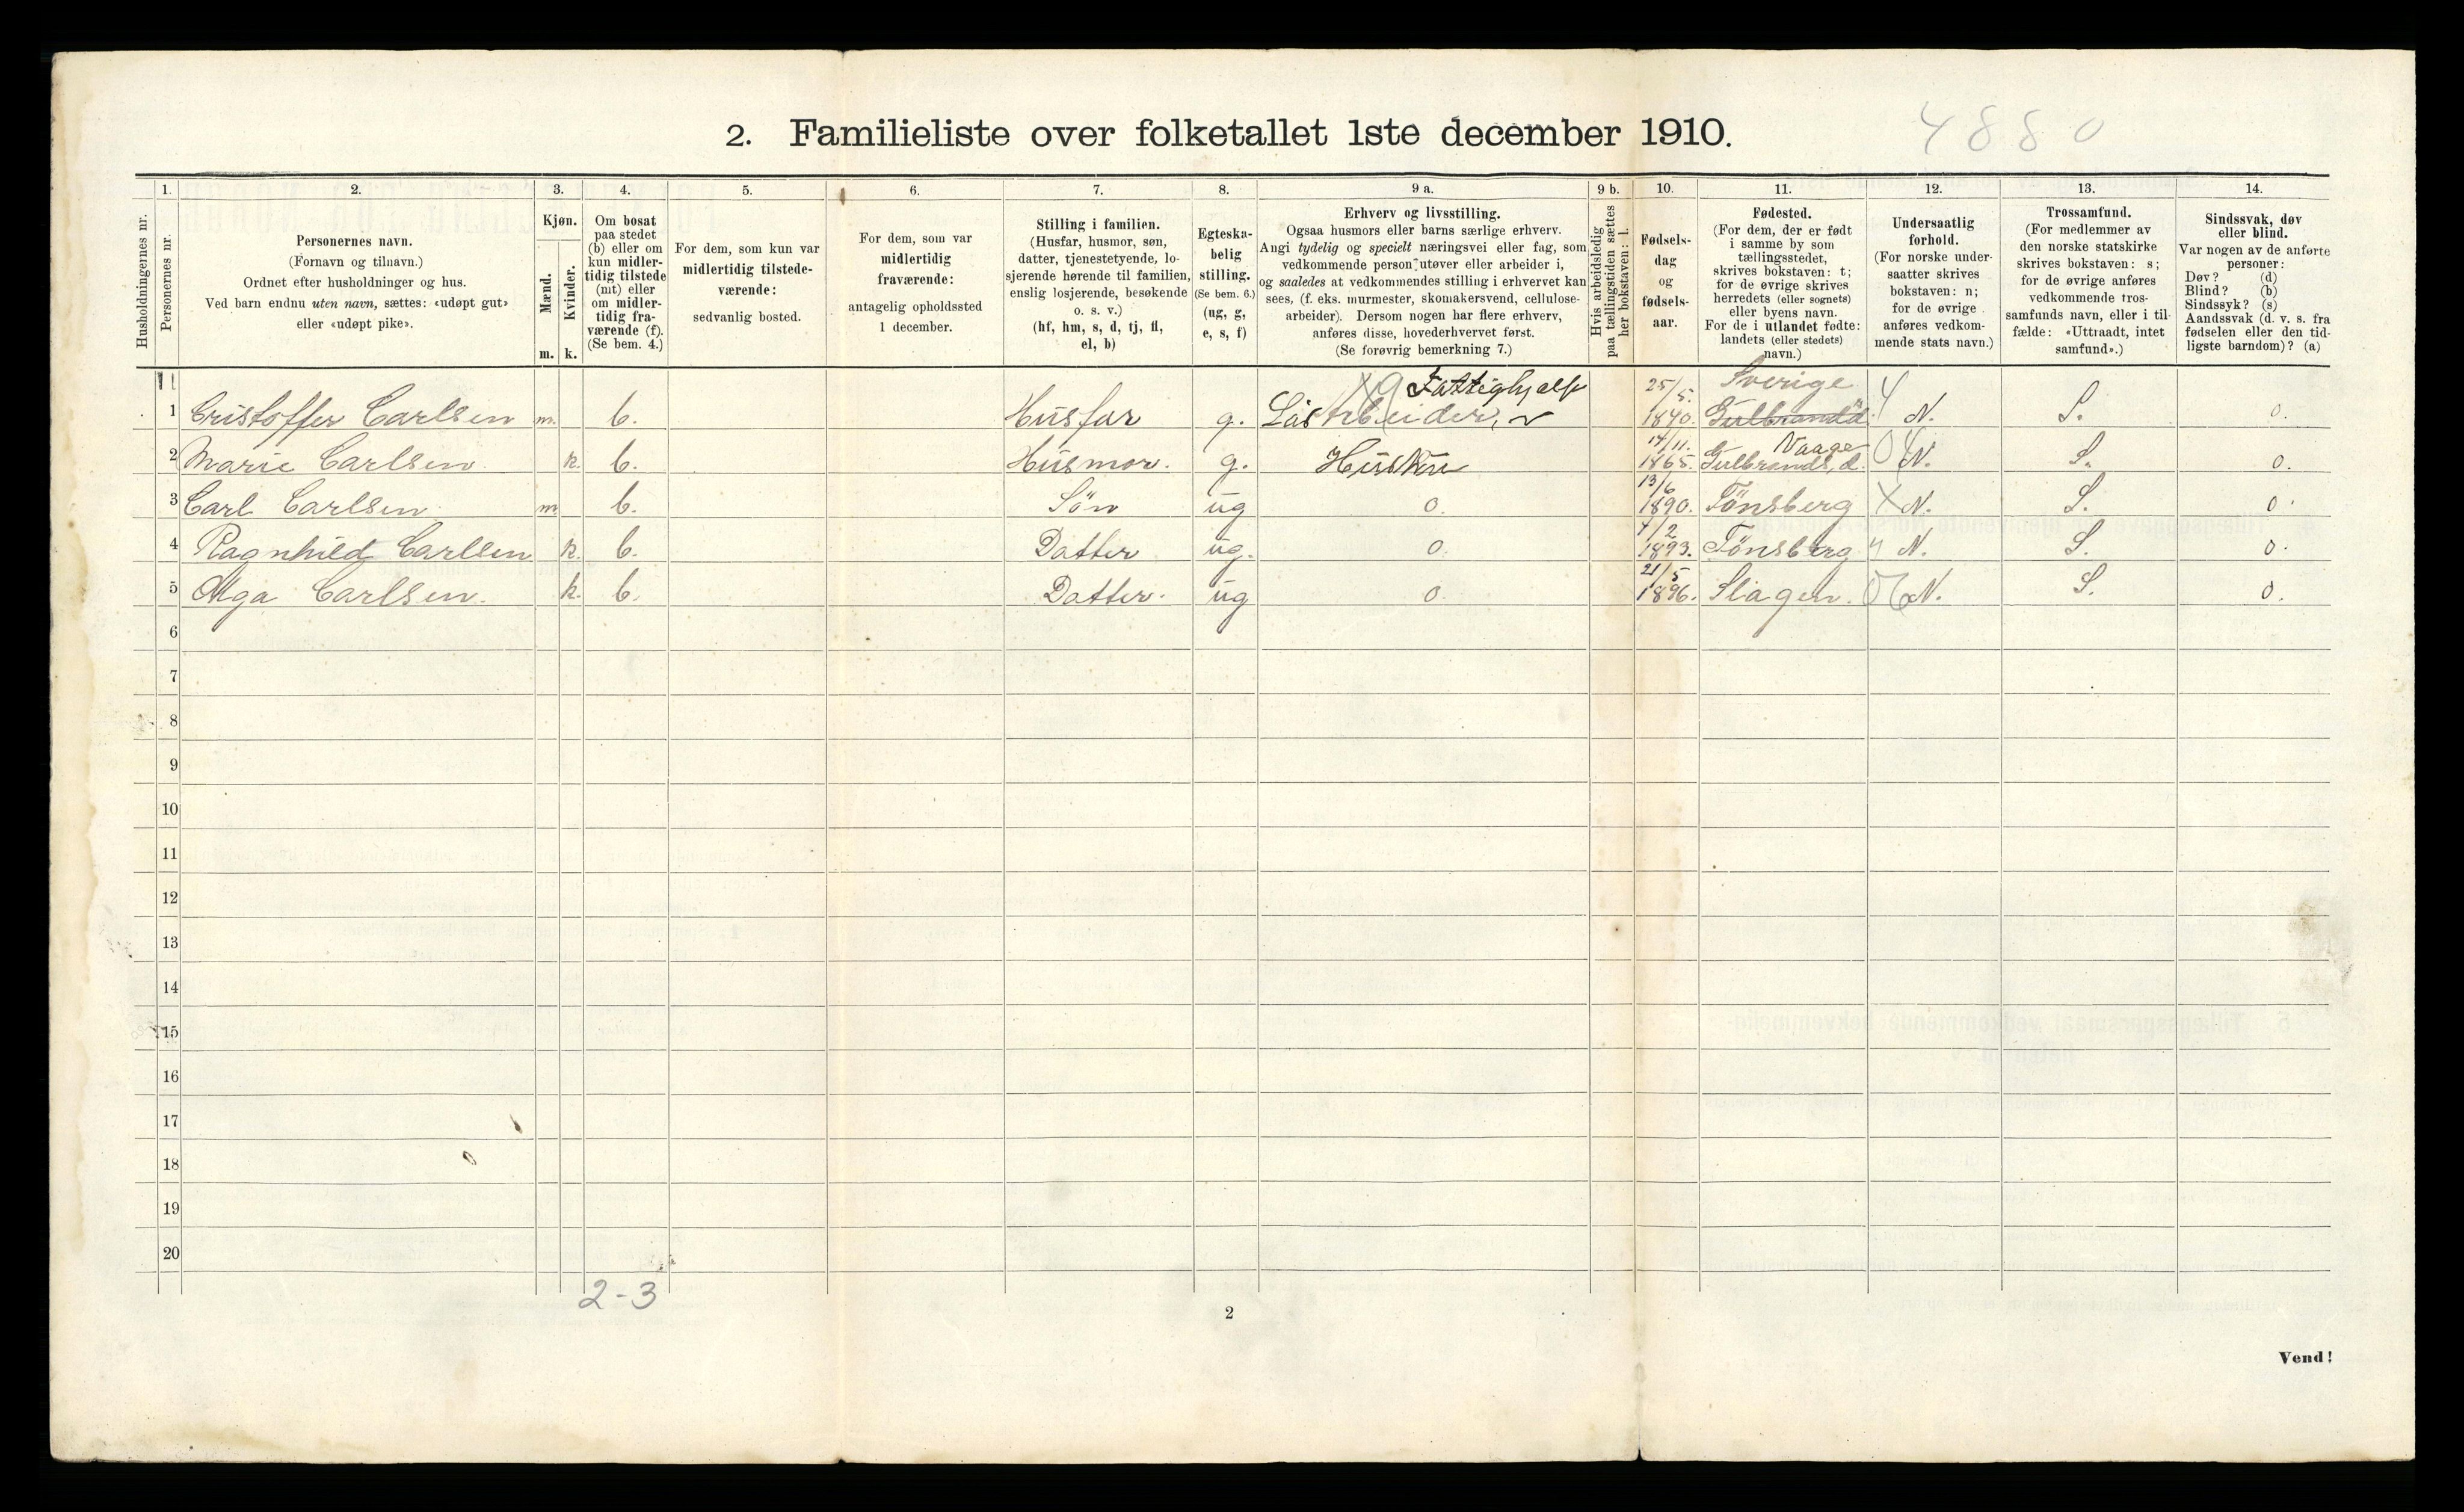 2. Familieliste over folketallet 1ste december 1910.
4880
1. 2. 3. 4. 5. 6. 7. 8. 9 a. 9 b. 10. 11. 12. 13. 14.
Husholdningernes nr.
Personernes nr.
Personernes navn.
(Fornavn og tilnavn.)
Ordnet efter husholdninger og hus.
Ved barn endnu uten navn, sættes: «udøpt gut»
eller «udøpt pike».
Kjøn.
Mænd.
Kvinder.
m. k.
Om bosat
paa stedet
(b) eller om
kun midler-
tidig tilstede
(mt) eller
om midler-
tidig fra-
værende (f).
(Se bem. 4.)
For dem, som kun var
midlertidig tilstede-
værende:
sedvanlig bosted.
For dem, som var
midlertidig
fraværende:
antagelig opholdssted
1 december.
Stilling i familien.
(Husfar, husmor, søn,
datter, tjenestetyende, lo-
sjerende hørende til familien,
enslig losjerende, besøkende
o. s. v.)
(hf, hm, s, d, tj, fl,
el, b)
Egteska-
belig
stilling.
(Se bem. 6.)
(ug, g,
e, s, f)
Erhverv og livsstilling.
Ogsaa husmors eller barns særlige erhverv.
Angi tydelig og specielt næringsvei eller fag, som
vedkommende person utøver eller arbeider i,
og saaledes at vedkommendes stilling i erhvervet kan
sees, (f. eks. murmester, skomakersvend, cellulose-
arbeider). Dersom nogen har flere erhverv,
anføres disse, hovederhvervet først.
(Se forøvrig bemerkning 7.)
Hvis arbeidsledig
paa tællingstiden sættes
her bokstaven: l.
Fødsels-
dag
og
fødsels-
aar.
Fødested.
(For dem, der er født
i samme by som
tællingsstedet,
skrives bokstaven: t;
for de øvrige skrives
herredets (eller sognets)
eller byens navn.
For de i utlandet fødte:
landets (eller stedets)
navn.)
Undersaatlig
forhold.
(For norske under-
saatter skrives
bokstaven: n;
for de øvrige
anføres vedkom-
mende stats navn.)
Trossamfund.
(For medlemmer av
den norske statskirke
skrives bokstaven: s;
for de øvrige anføres
vedkommende tros-
samfunds navn, eller i til-
fælde: «Uttraadt, intet
samfund».)
Sindssvak, døv
eller blind.
Var nogen av de anførte
personer:
Døv? (d)
Blind? (b)
Sindssyk? (s)
Aandssvak (d. v. s. fra
fødselen eller den tid-
ligste barndom)? (a)
Fattighjælp 25/5. Sverige
1 Cristoffer Carlsen m. b. Husfar g. Arbeider, 1840. Gulbrandsd. N. S. 0.
14/11. Vaage
2 Marie Carlsen k. b. Husmor. g. Hustru 1865. Gulbrands, d. N. S. 0.
13/6
3 Carl Carlsen m b. Søn ug 0. 1890. Tönsberg N. S. 0.
4/2
4 Ragnhild Carlsen k. b. Datter ug. 0. 1893. Tönsberg N. S. 0.
21/5
5 Olga Carlsen. k. b. Datter. ug 0. 1896. Slagen. N. S. 0.
6
7
8
9
10
11
12
13
14
15
16
17
18
19
20
2-3
2
Vend!